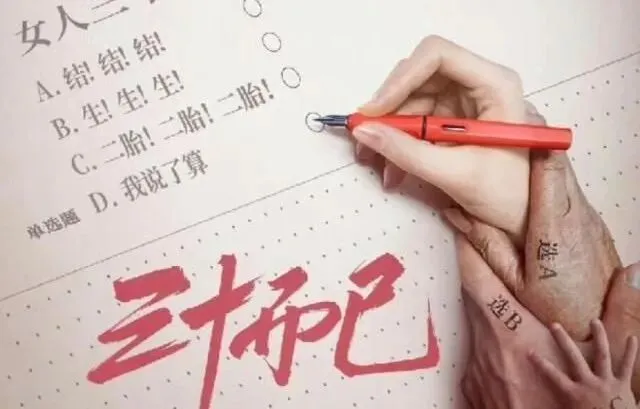 女人三十
A. 结! 结! 结!
B. 生! 生! 生!
C. 二胎! 二胎! 二胎!
D. 我说了算
单选题
三十而已
选A
选B
C